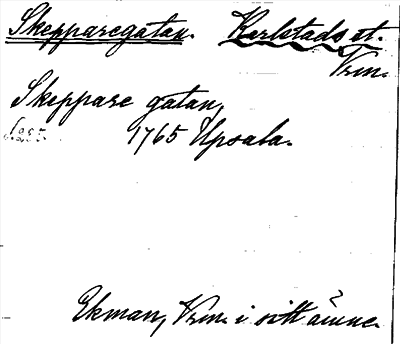 Skepparegatan. Karlstads st.
Vrm.
Skeppare gatan,
s. 255. 1765 Upsala.
Ekman, Vrm. i sitt ämne.